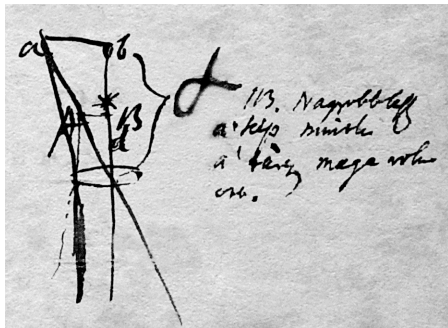 a b
A B
d
NB. Nagyobbleg
a' kép mintha
a' tárgy maga volna